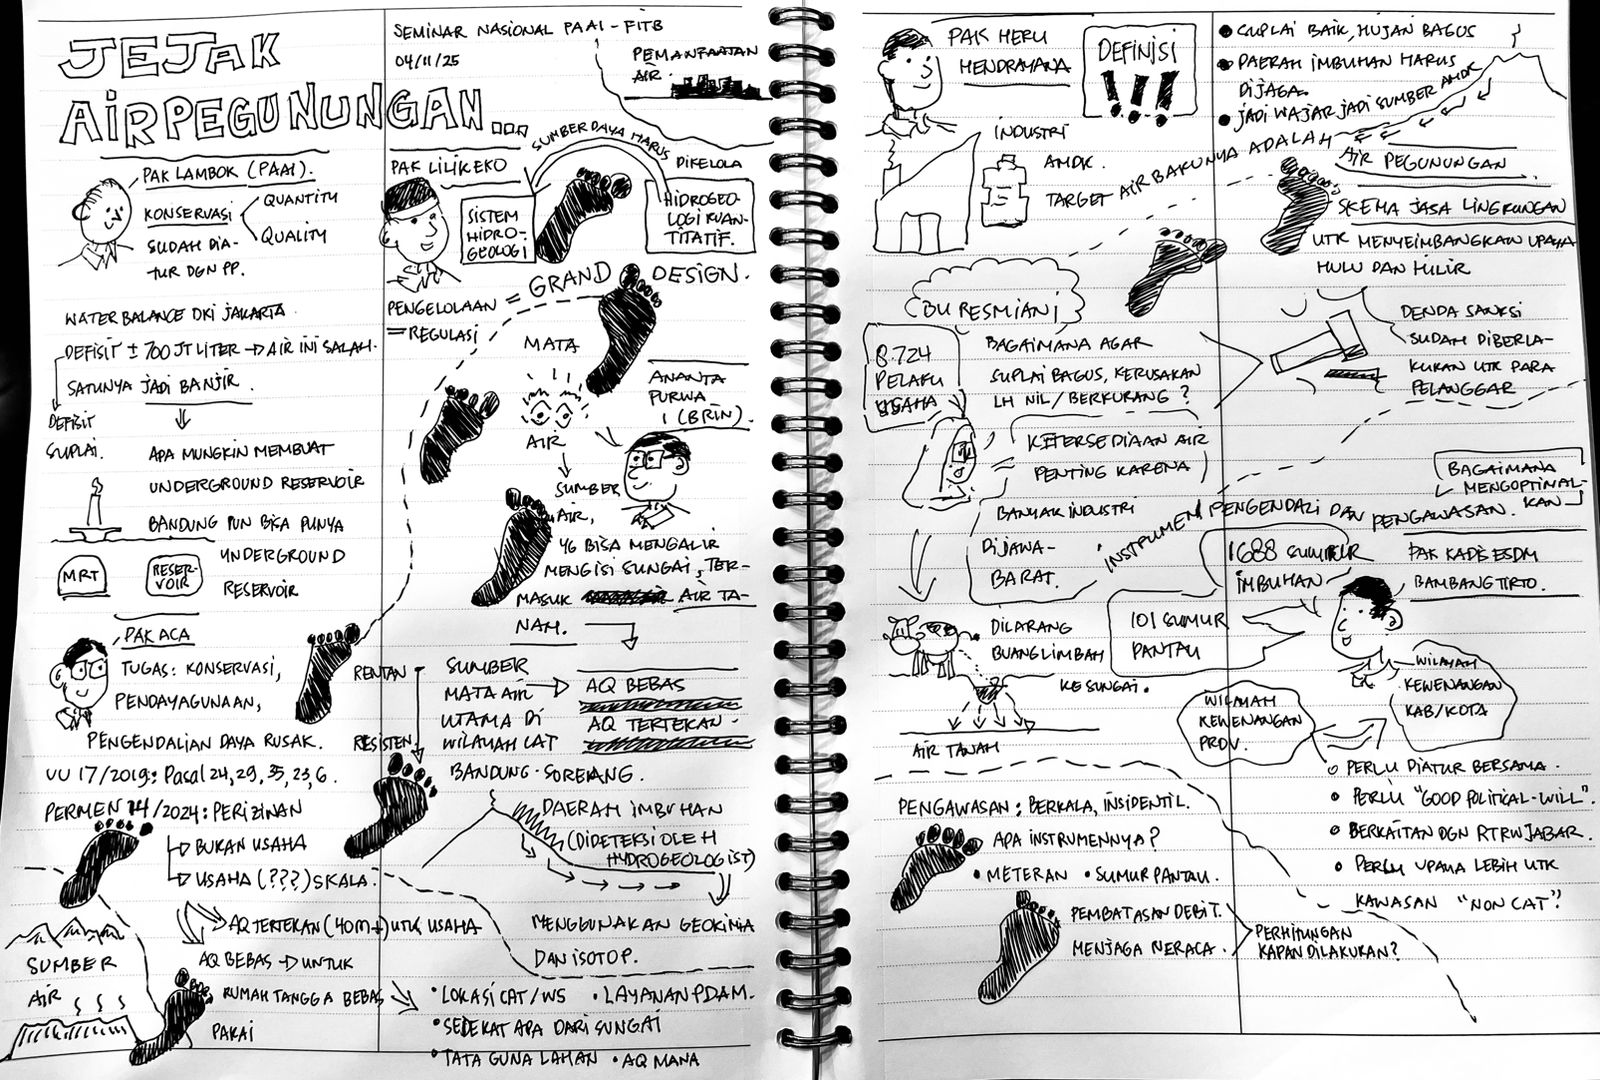 JEJAK
AIR PEGUNUNGAN...
SEMINAR NASIONAL PAAI - FITB
04/11/25
PEMANFAATAN
AIR.
PAK LAMBOK (PAAI).
KONSERVASI
QUANTITY
QUALITY
SUDAH DIA-
TUR DGN PP.
WATER BALANCE DKI JAKARTA
DEFISIT ± 700 JT LITER → AIR INI SALAH-
SATUNYA JADI BANJIR.
DEFISIT
SUPLAI.
APA MUNGKIN MEMBUAT
UNDERGROUND RESERVOIR
BANDUNG PUN BISA PUNYA
UNDERGROUND
RESERVOIR
MRT
RESER-
VOIR
PAK ACA
TUGAS: KONSERVASI,
PENDAYAGUNAAN,
PENGENDALIAN DAYA RUSAK.
UU 17/2019: Pasal 24, 29, 35, 23, 6.
PERMEN 14/2024: PERIZINAN
BUKAN USAHA
USAHA (???) SKALA.
AQ TERTEKAN (40M+) UTK USAHA
AQ BEBAS → UNTUK
RUMAH TANGGA BEBAS
PAKAI
SUMBER
AIR
PAK LILIK EKO
SUMBER DAYA HARUS DIKELOLA
SISTEM
HIDRO-
GEOLOGI
HIDROGEO-
LOGI KUAN-
TITATIF.
GRAND DESIGN.
PENGELOLAAN =
= REGULASI
MATA
AIR
ANANTA
PURWA
(BRIN).
SUMBER
AIR,
YG BISA MENGALIR
MENGISI SUNGAI, TER-
MASUK AIR TA-
NAH.
RENTAN
RESISTEN
SUMBER
MATA AIR
UTAMA DI
WILAYAH CAT
BANDUNG-SOREANG.
AQ BEBAS
AQ TERTEKAN.
DAERAH IMBUHAN
(DIDETEKSI OLEH
HYDROGEOLOGIST)
MENGGUNAKAN GEOKIMIA
DAN ISOTOP.
• LOKASI CAT/WS • LAYANAN PDAM.
• SEDEKAT APA DARI SUNGAI
• TATA GUNA LAHAN • AQ MANA
PAK HERU
HENDRAYANA
DEFINISI
!!!
INDUSTRI
AMDK.
TARGET AIR BAKUNYA ADALAH
AIR PEGUNUNGAN
• SUPLAI BAIK, HUJAN BAGUS
• DAERAH IMBUHAN HARUS
DIJAGA.
• JADI WAJAR JADI SUMBER AMDK
SKEMA JASA LINGKUNGAN
UTK MENYEIMBANGKAN UPAYA
HULU DAN HILIR
BU RESMIANI
8.724
PELAKU
USAHA
BAGAIMANA AGAR
SUPLAI BAGUS, KERUSAKAN
LH NIL/BERKURANG?
DENDA SANKSI
SUDAH DIBERLA-
KUKAN UTK PARA
PELANGGAR
KETERSEDIAAN AIR
PENTING KARENA
BANYAK INDUSTRI
DI JAWA-
BARAT.
INSTRUMEN PENGENDALI DAN PENGAWASAN.
BAGAIMANA
MENGOPTIMAL-
KAN
DILARANG
BUANG LIMBAH
KE SUNGAI.
AIR TANAH
1688 SUMUR
IMBUHAN
101 SUMUR
PANTAU
PAK KADIS ESDM
BAMBANG TIRTO.
WILAYAH
KEWENANGAN
PROV.
WILAYAH
KEWENANGAN
KAB/KOTA
PENGAWASAN: BERKALA, INSIDENTIL.
APA INSTRUMENNYA?
• METERAN • SUMUR PANTAU.
PEMBATASAN DEBIT.
MENJAGA NERACA.
PERHITUNGAN
KAPAN DILAKUKAN?
○ PERLU DIATUR BERSAMA.
• PERLU "GOOD POLITICAL-WILL".
• BERKAITAN DGN RTRW JABAR.
• PERLU UPAYA LEBIH UTK
KAWASAN "NON CAT"?